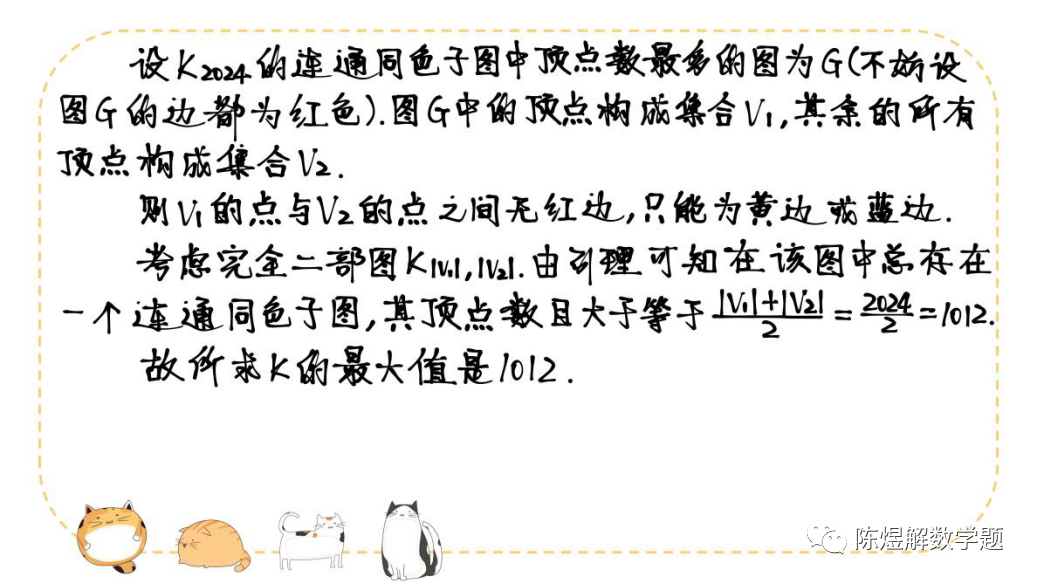 设K2024的连通同色子图中顶点数最多的图为G(不妨设
图G的边都为红色).图G中的顶点构成集合V1,其余的所有
顶点构成集合V2.
则V1的点与V2的点之间无红边,只能为黄边或蓝边.
考虑完全二部图K|V1|,|V2|.由引理可知在该图中总存在
一个连通同色子图,其顶点数目大于等于|V1|+|V2|/2=2024/2=1012.
故所求K的最大值是1012.
陈煜解数学题